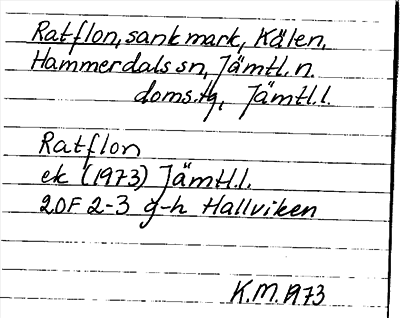 Ratflon, sank mark, Kälen,
Hammerdals sn, Jämtl. n.
doms.tg, Jämtl. l.
Ratflon
ek (1973) Jämtl. l.
20F 2-3 g-h Hallviken
K.M. 1973